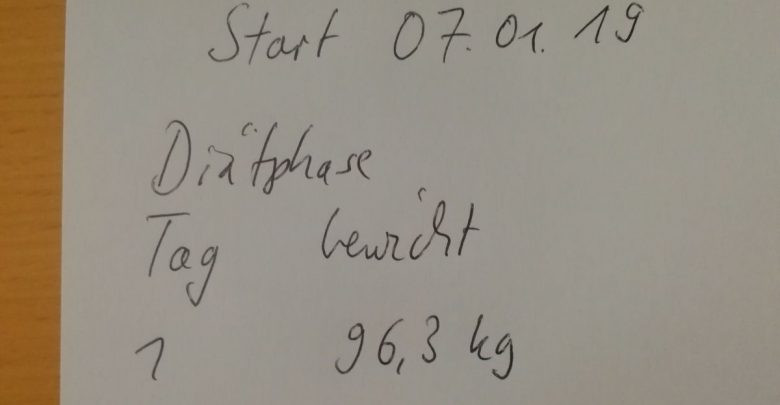 Start 07.01.19
Diätphase
Tag Gewicht
1 96,3 kg